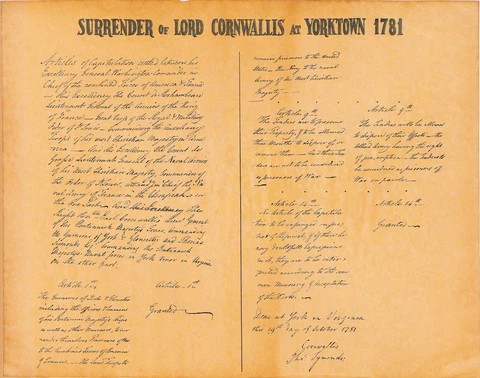 SURRENDER OF LORD CORNWALLIS AT YORKTOWN 1781
Articles of Capitulation settled between his
Excellency General Washington Commander in
Chief of the combined Forces of America & France
His Excellency the Count de Rochambeau
Lieutenant General of the Armies of the King
of France Great Cross of the Royal & Military
Order of St. Louis Commanding the auxiliary
troops of his most Christian Majesty in Ame
rica And his Excellency the Count de
Grasse Lieutenant General of the Naval Armies
of his Most Christian Majesty, Commander of
the Order of St. Louis, Commanding in Chief the Na
val Army of France in the Chesapeake
on the One Part And
Earl Cornwallis Lieut. General
of His Britannick Majesty's Forces, Commanding
the Garrisons of York & Gloucester and Thomas
Symonds Esq. commanding his Britannick
Majesty's Naval forces in York River in Virginia
on the other part.
Article 1st
Article 1st
The Garrisons of York & Gloucester
including the Officers & Seamen
of his Britannic Majesty's Ships
as well as other Mariners, to sur-
render themselves Prisoners of War
to the Combined Forces of America
& France The Land Troops to
Granted
remain prisoners to the United
States The Navy to the naval
Army of his Most Christian
Majesty
Article 9th
The Traders are to preserve
their Property, & to be allowed
three Months to dispose of, or
remove them And those Traders
are not to be considered
as prisoners of War
Article 9th
The Traders will be allowed
to dispose of their Effects
the Allied Army having the right
of pre-emption The Traders to
be considered as prisoners of
War on parole.
Article 14th
No Article of the Capitula
tion to be infringed on pre
text of Reprisal, & if there be
any doubtful Expressions
in it, they are to be inter
preted according to the com
mon Meaning & acceptation
of the Words
Article 14th
Granted
Done at York in Virginia
this 19th day of October 1781
Cornwallis
Tho. Symonds